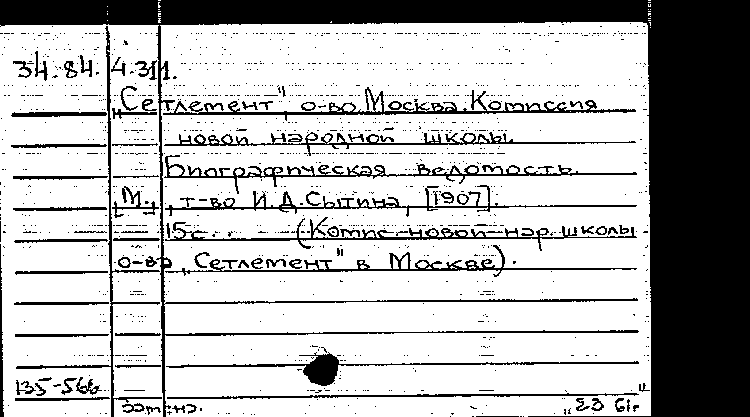 34.84. 4.311.
„Сетлемент", о-во. Москва. Комиссия
новой народной школы.
Биографическая ведомость.
[М.], т-во И.Д. Сытина, [1907].
15с. . (Комис. новой нар. школы
о-ва „Сетлемент" в Москве).
135-566